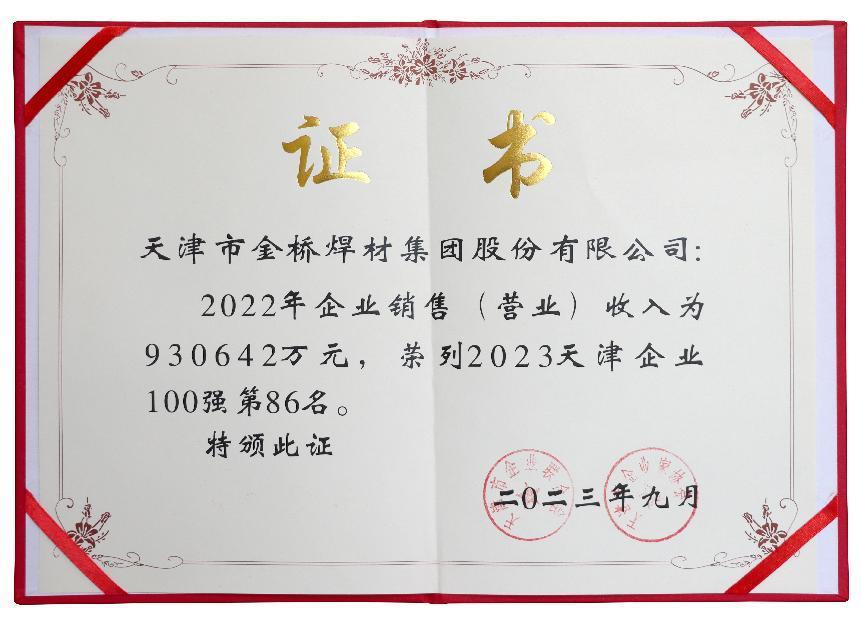 证书
天津市金桥焊材集团股份有限公司:
2022年企业销售（营业）收入为
930642万元，荣列2023天津企业
100强第86名。
特颁此证
二〇二三年九月